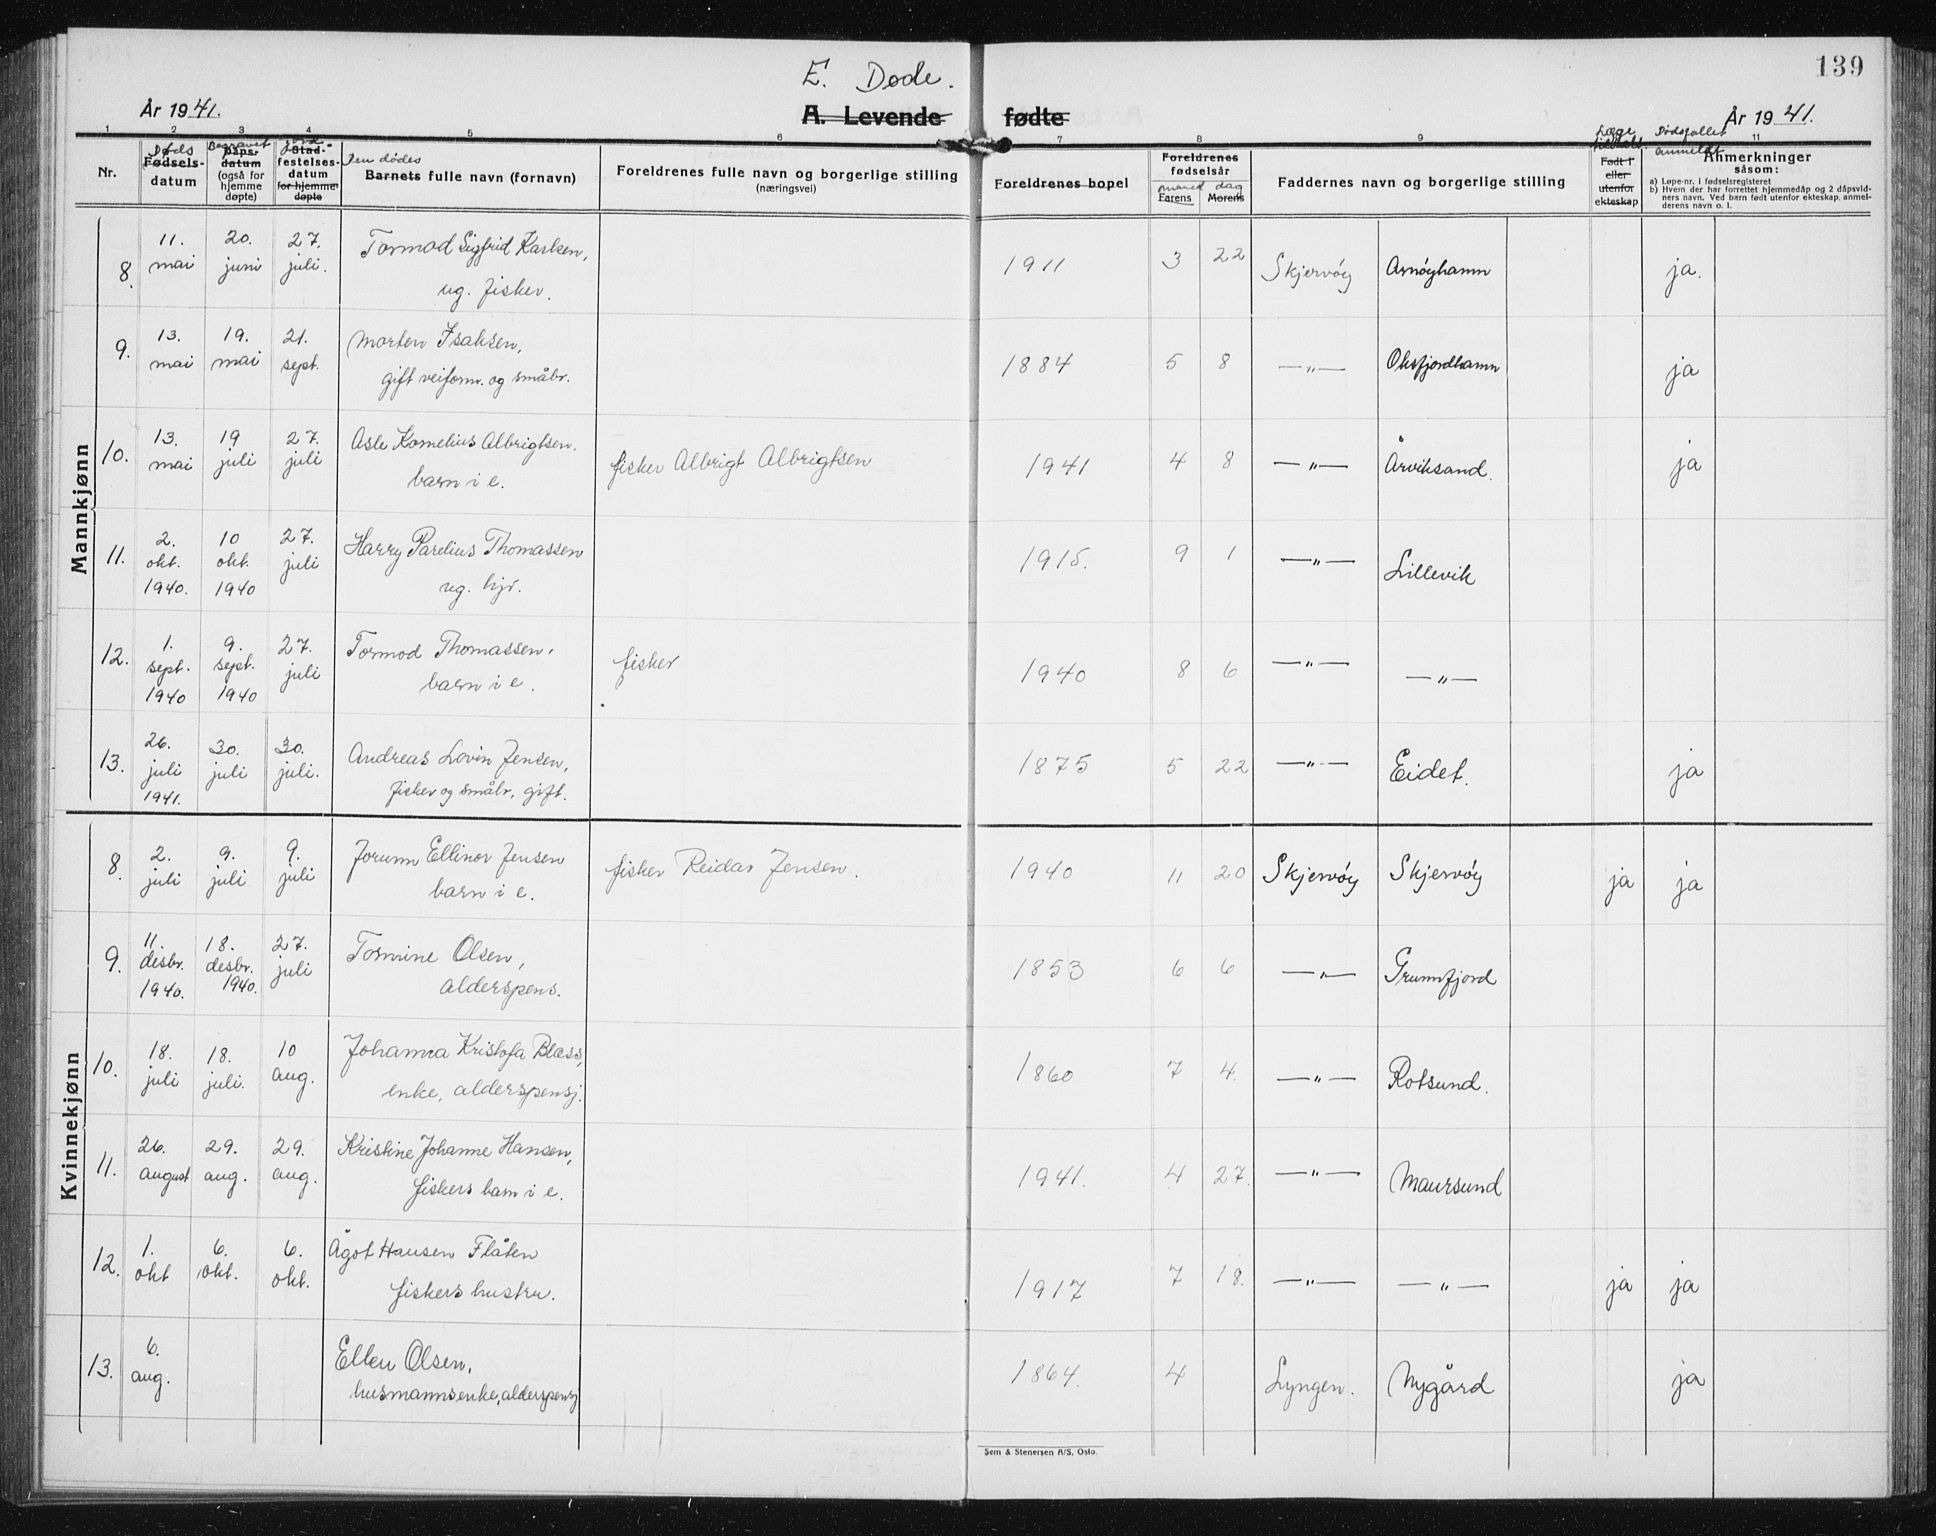 139
E. Døde.
År 1941. A. Levende fødte År 1941.
1 2 3 4 5 6 7 8 9 11
Nr.
Døds
Fødsels-
datum
Begravet
Dåps-
datum
(også for
hjemme
døpte)
jord-
Stad-
festelses-
datum
for hjemme-
døpte
Den dødes
Barnets fulle navn (fornavn)
Foreldrenes fulle navn og borgerlige stilling
(næringsvei)
Foreldrenes bopel
Foreldrenes
fødselsår
måned dag
Farens Morens
Faddernes navn og borgerlige stilling
Læge
tilkalt.
Født i
eller
utenfor
ekteskap
Dødsfallet
anmeldt
Anmerkninger
såsom:
a) Løpe-nr. i fødselsregisteret
b) Hvem der har forrettet hjemmedåp og 2 dåpsvid-
ners navn. Ved barn født utenfor ekteskap, anmel-
derens navn o. l.
Mannkjønn
8. 11. mai 20. juni 27. juli. Tormod Sigfrid Karlsen, 1911 3 22 Skjervøy Arnøyhamn ja.
ug. fisker.
9. 13. mai 19. mai 21. sept. Morten Isaksen, 1884 5 8 —„— Oksfjordhamn ja
gift veiform. og småbr.
10. 13. mai 19 juli 27. juli Asle Kornelius Albrigtsen. fisker Albrigt Albrigtsen 1941 4 8 —„— Årviksand. ja
barn i e.
11. 2. okt. 1940. 10 okt. 1940 27. juli Harry Parelius Thomassen 1915. 9 1 —„— Lillevik
ug. hjr.
12. 1. sept. 1940 9. sept. 1940 27. juli Tormod Thomassen, fisker 1940 8 6 —„— —„—
barn i e.
13. 26. juli 1941. 30. juli 30. juli. Andreas Lovin Jensen, 1875 5 22 —„— Eidet. ja
fisker og småbr, gift.
Kvinnekjønn
8. 2. juli 9. juli 9. juli Jorunn Ellinor Jensen fisker Reidar Jensen. 1940 11 20 Skjervøy Skjervøy ja ja
barn i e.
9. 11. desbr. 1940. 18. desbr. 1940. 27. juli Tormine Olsen, 1853 6 6 —„— Grunnfjord
alderspens.
10. 18. juli 18. juli. 10 aug. Johanna Kristofa Blæss, 1860 7 4. —„— Rotsund.
enke, alderspensj.
11. 26. august 29. aug. 29. aug. Kristine Johanne Hansen, 1941. 4 27. —„— Maursund
fiskers barn i e.
12. 1. okt 6. okt. 6. okt. Ågot Hansen Flåten 1917 7 18. —„— —„— ja ja
fiskers hustru.
13. 6. aug. Ellen Olsen, 1864. 4 Lyngen. Nygård ja
husmannsenke, alderspensj
Sem & Stenersen A/S, Oslo.